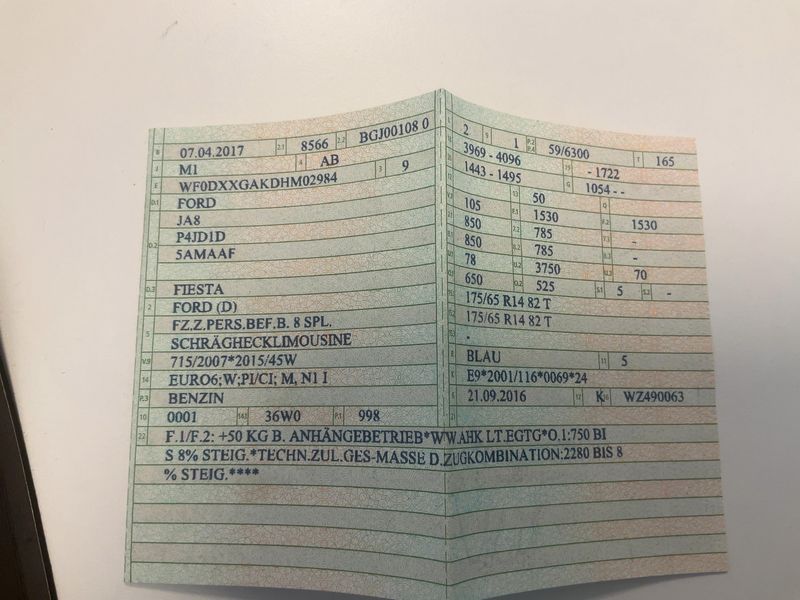 B 07.04.2017 2.1 8566 2.2 BGJ00108 0
J M1 4 AB
E WF0DXXGAKDHM02984 3 9
D.1 FORD
JA8
D.2 P4JD1D
5AMAAF
D.3 FIESTA
2 FORD (D)
5 FZ.Z.PERS.BEF.B. 8 SPL.
SCHRÄGHECKLIMOUSINE
V.9 715/2007*2015/45W
14 EURO6;W;PI/CI; M, N1 I
P.3 BENZIN
10 0001 14.1 36W0 P.1 998
L 2 9 1 P.2 P.4 59/6300 T 165
18 3969 - 4096 19 - 1722
20 1443 - 1495 G 1054 - -
12 13 50 Q
V.7 105 F.1 1530 F.2 1530
7.1 850 7.2 785 7.3 -
8.1 850 8.2 785 8.3 -
U.1 78 U.2 3750 U.3 70
O.1 650 O.2 525 S.1 5 S.2 -
15.1 175/65 R14 82 T
15.2 175/65 R14 82 T
15.3 -
R BLAU 11 5
K E9*2001/116*0069*24
6 21.09.2016 17 K 16 WZ490063
21
22 F.1/F.2: +50 KG B. ANHÄNGEBETRIEB*WW.AHK LT.EGTG*O.1:750 BI
S 8% STEIG.*TECHN.ZUL.GES-MASSE D.ZUGKOMBINATION:2280 BIS 8
% STEIG.****